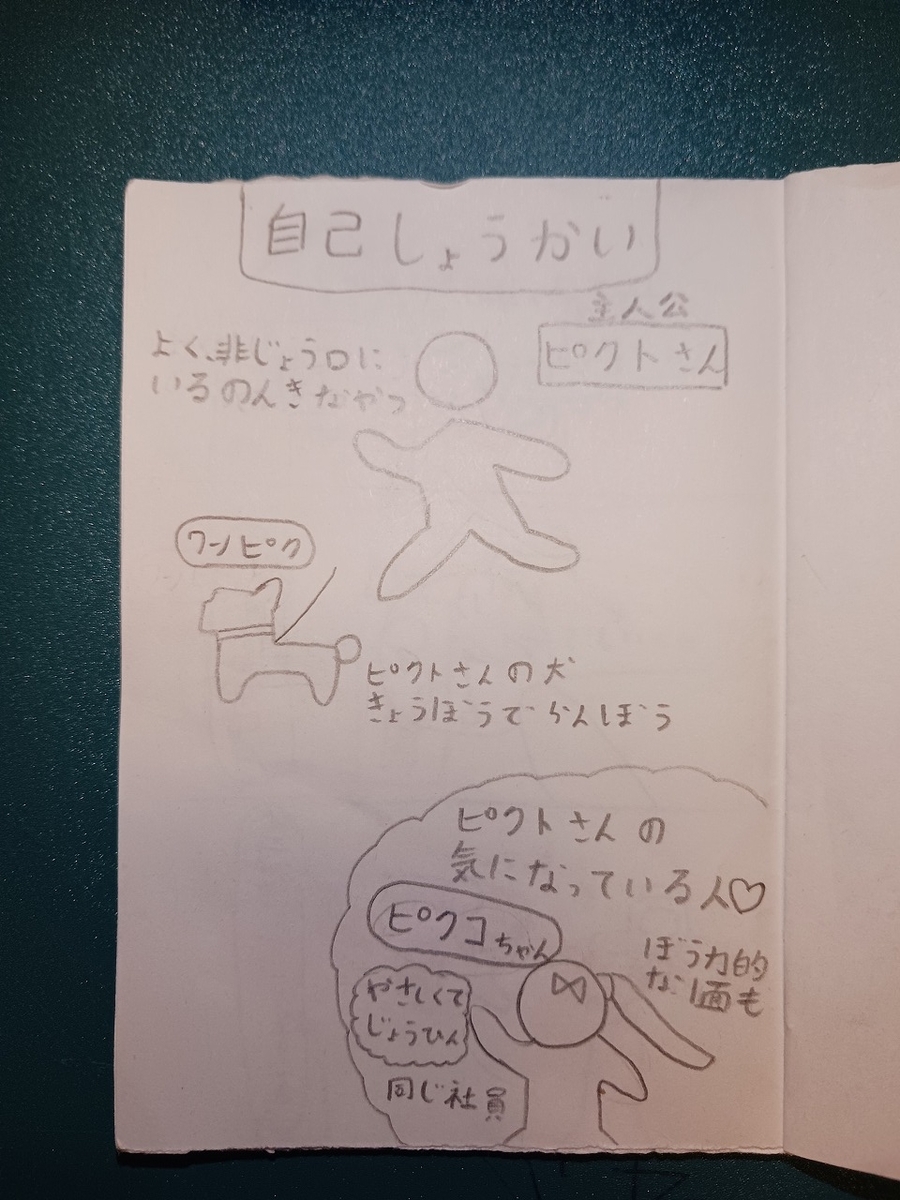 自己しょうかい
主人公
ピクトさん
よく、非じょう口に
いるのんきなやつ
ワンピク
ピクトさんの犬
きょうぼうでらんぼう
ピクトさんの
気になっている人♡
ピクコちゃん
ぼう力的
な面も
やさしくて
じょうひん
同じ社員